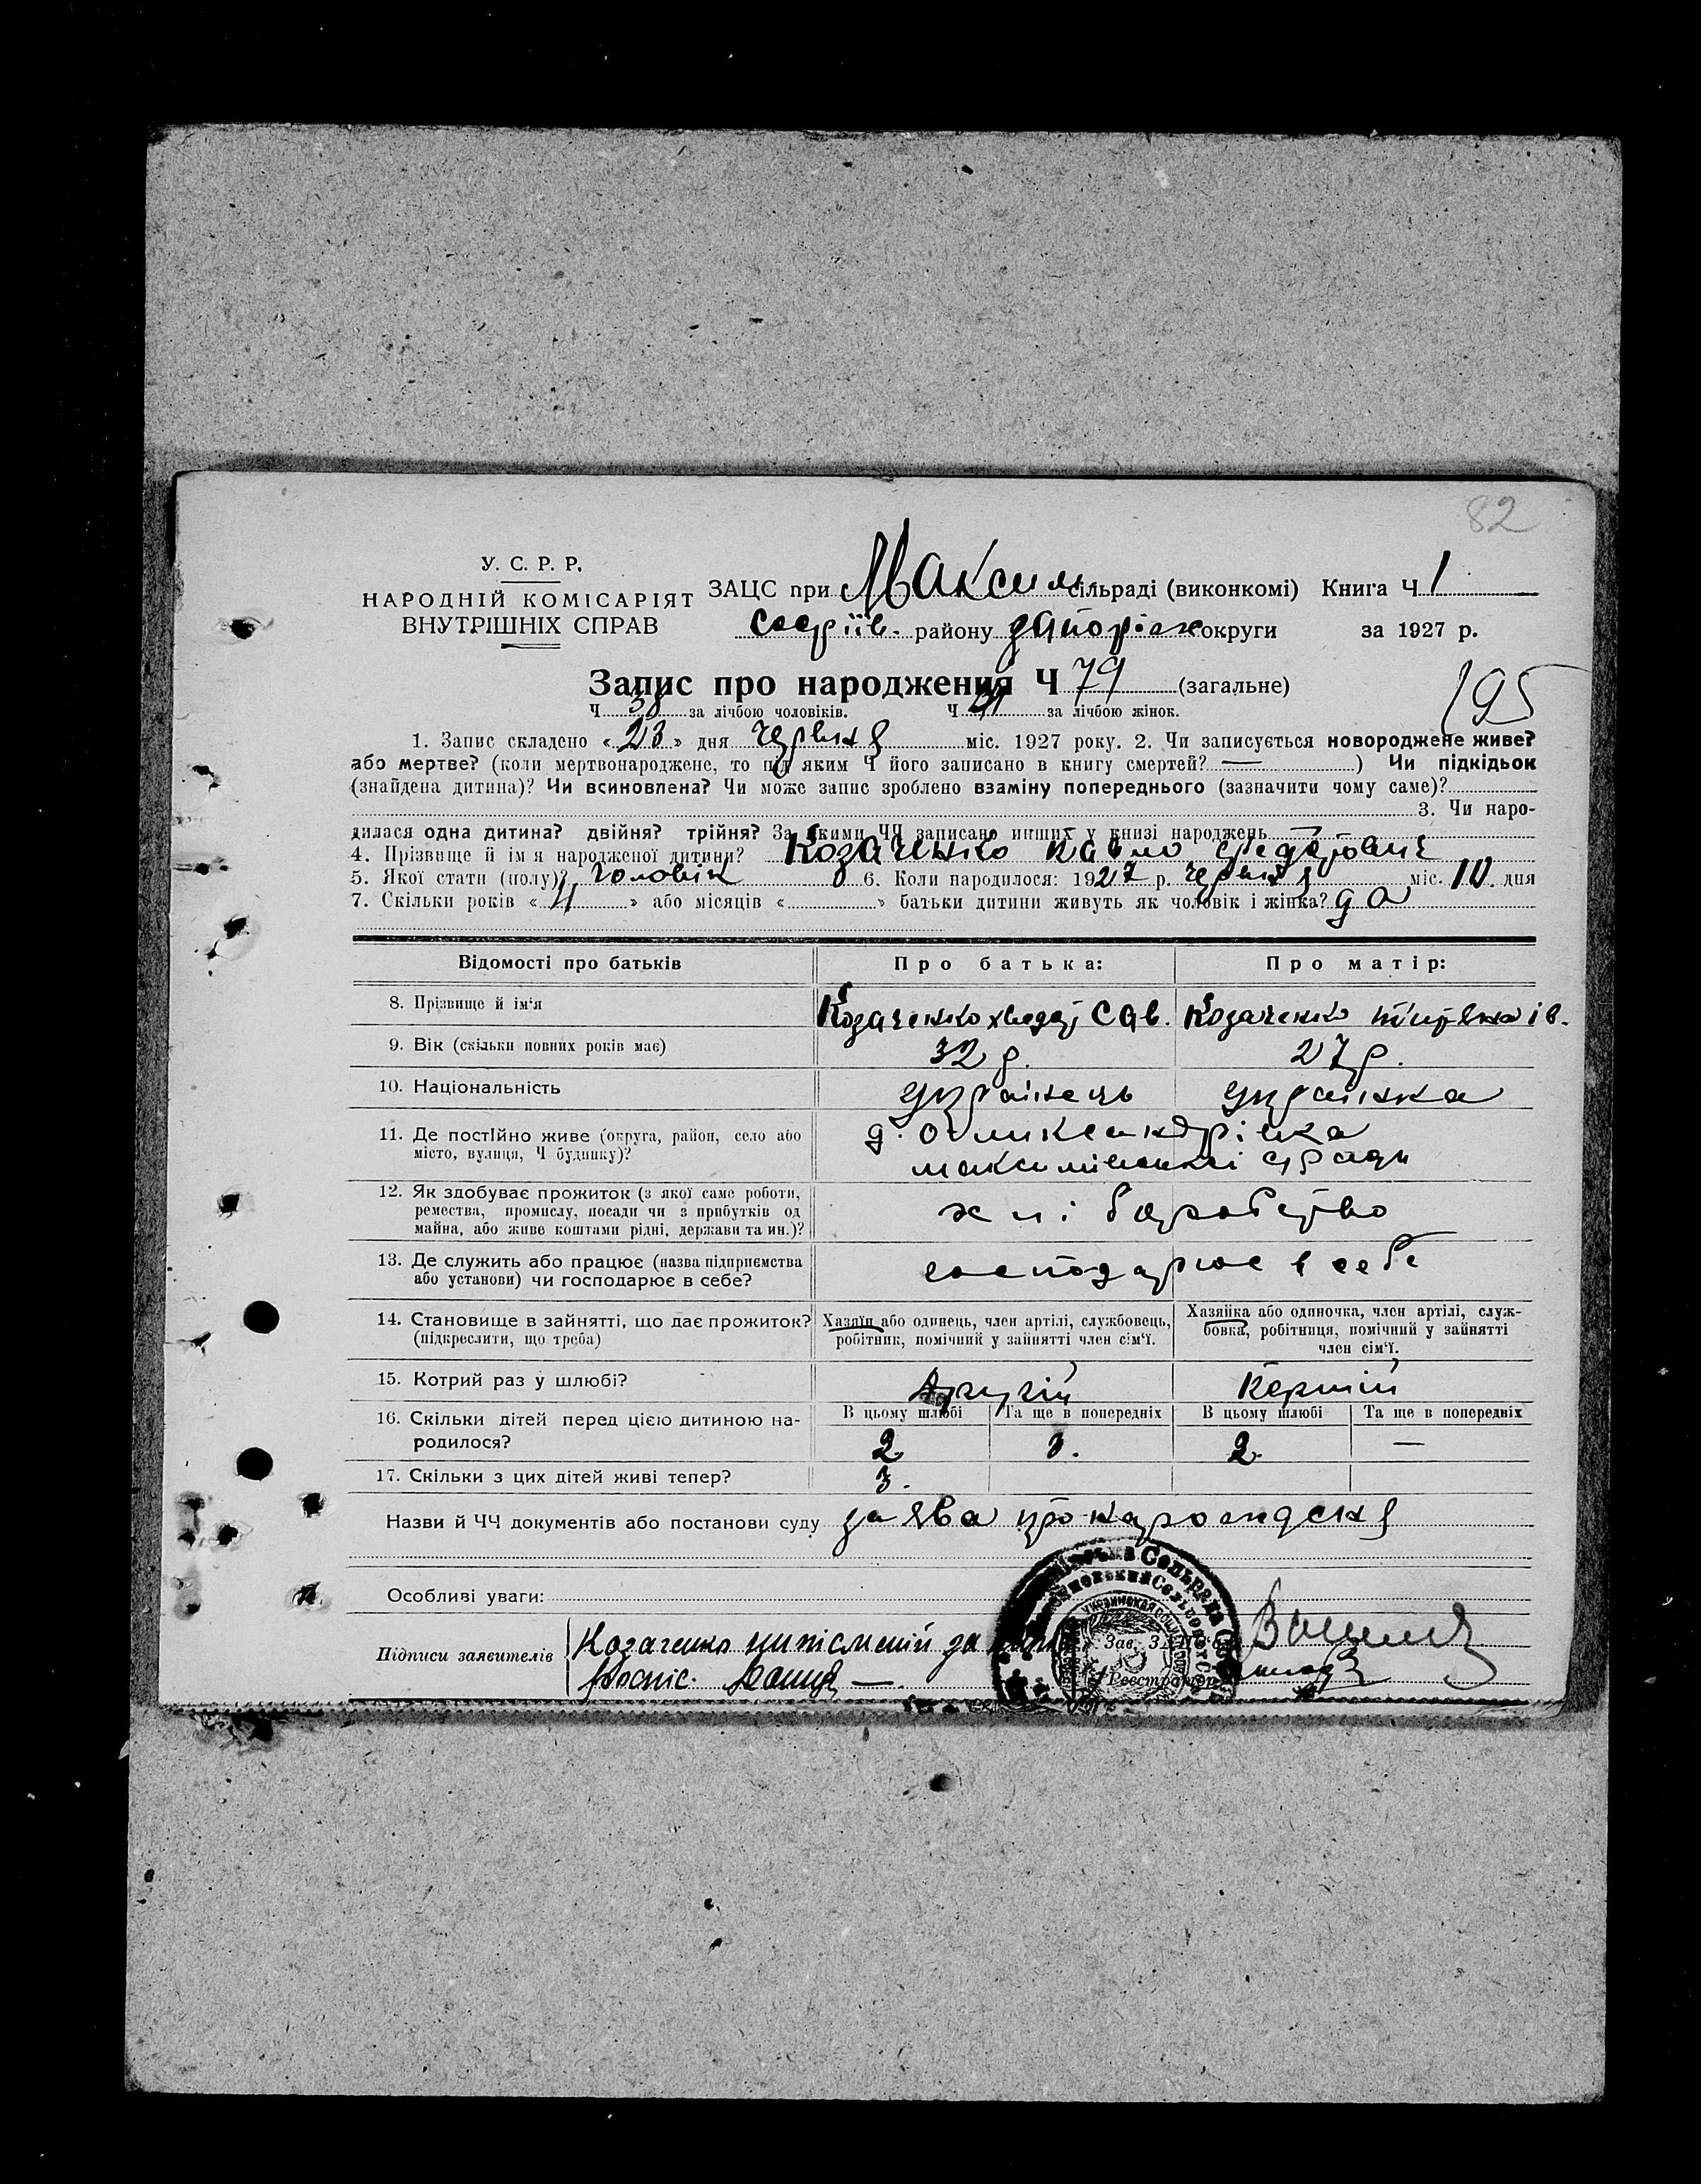 82
У. С. Р. Р.
НАРОДНІЙ КОМІСАРІЯТ
ВНУТРІШНІХ СПРАВ
ЗАЦС при Максим. сільраді (виконкомі) Книга Ч 1
району Запоріж округи за 1927 р.
Запис про народження Ч 79 (загальне)
195
Ч 38 за лічбою чоловіків. Ч за лічбою жінок.
1. Запис складено «23» дня червня міс. 1927 року. 2. Чи записується новороджене живе?
або мертве? (коли мертвонароджене, то під яким Ч його записано в книгу смертей? —) Чи підкідьок
(знайдена дитина)? Чи всиновлена? Чи може запис зроблено взаміну попереднього (зазначити чому саме)?
3. Чи наро-
дилася одна дитина? двійня? трійня? За якими ЧЧ записано инших у книзі народжень —
4. Прізвище й ім'я народженої дитини? Козаченко Павло
5. Якої стати (полу)? чоловік 6. Коли народилося: 1927 р. червня міс. 10. дня
7. Скільки років «4» або місяців « » батьки дитини живуть як чоловік і жінка? да
Відомості про батьків
Про батька:
Про матір:
8. Прізвище й ім'я
Козаченко Хведар Сав.
Козаченко ів.
9. Вік (скільки повних років має)
32 р.
27 р.
10. Національність
українець
українка
11. Де постійно живе (округа, район, село або
місто, вулиця, Ч будинку)?
максимівської сради
12. Як здобуває прожиток (з якої саме роботи,
ремества, промислу, посади чи з прибутків од
майна, або живе коштами рідні, держави та ин.)?
хліборобство
13. Де служить або працює (назва підприємства
або установи) чи господарює в себе?
господарює в себе
14. Становище в зайнятті, що дає прожиток?
(підкреслити, що треба)
Хазяїн або одинець, член артілі, службовець,
робітник, помічний у зайнятті член сім'ї.
Хазяйка або одиночка, член артілі, служ-
бовка, робітниця, помічний у зайнятті
член сім'ї.
15. Котрий раз у шлюбі?
другій
Первій
16. Скільки дітей перед цією дитиною на-
родилося?
В цьому шлюбі
Та ще в попередніх
В цьому шлюбі
Та ще в попередніх
2.
3.
2.
—
17. Скільки з цих дітей живі тепер?
3.
Назви й ЧЧ документів або постанови суду заява про народження
Особливі уваги:
Підписи заявителів
Козаченко за
Зав. ЗАЦС'у
Реєстратор